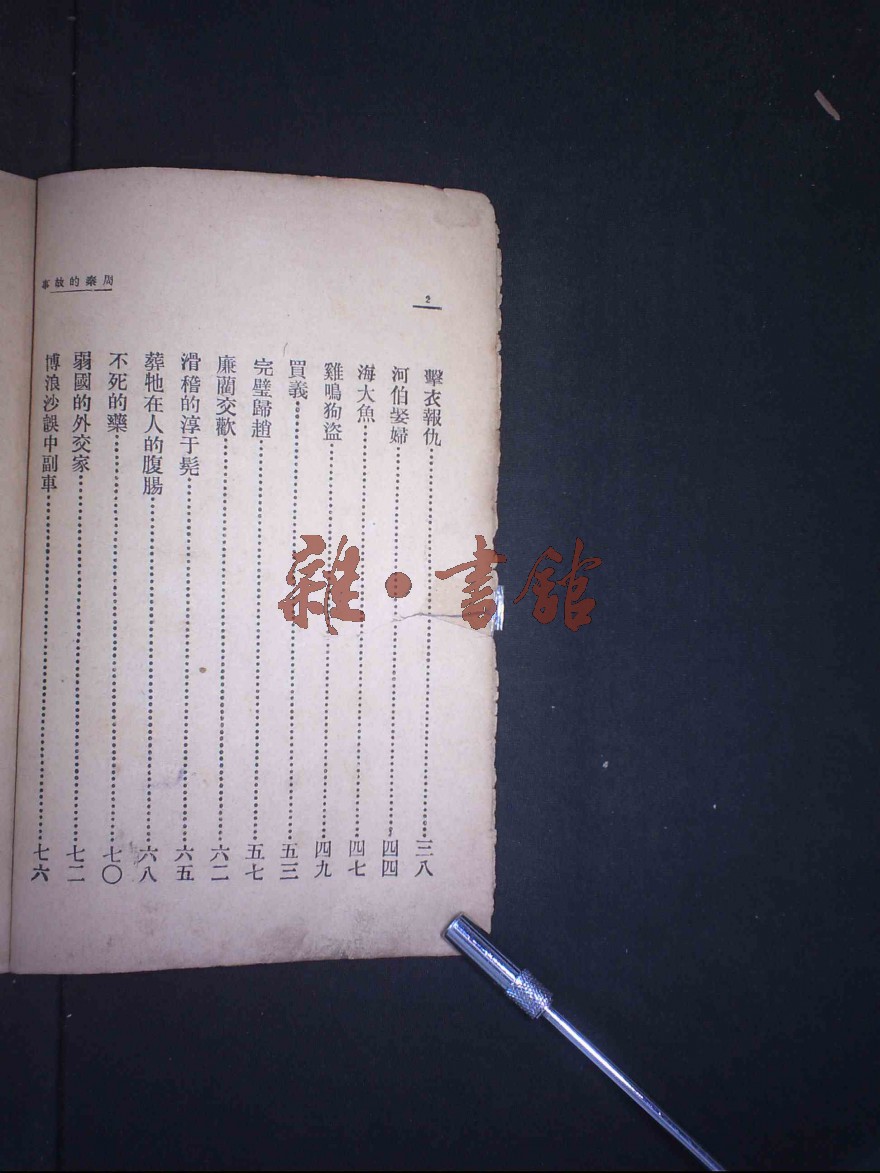 周秦的故事
2
擊衣報仇……三八
河伯娶婦……四四
海大魚……四七
雞鳴狗盜……四九
買義……五三
完璧歸趙……五七
廉藺交歡……六二
滑稽的淳于髡……六五
葬牠在人的腹腸……六八
不死的藥……七〇
弱國的外交家……七二
博浪沙誤中副車……七六
雜·書館